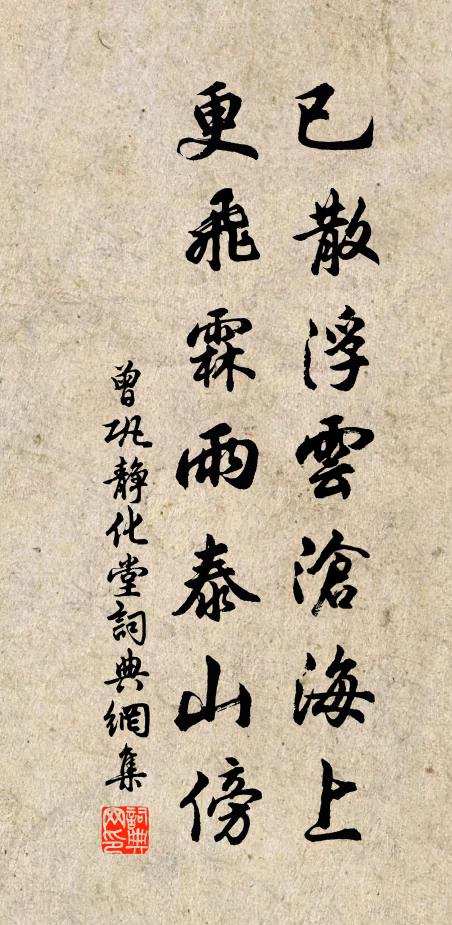 已散浮雲滄海上
更飛霖雨泰山傍
曾巩靜化堂詞典網集
詞典网印